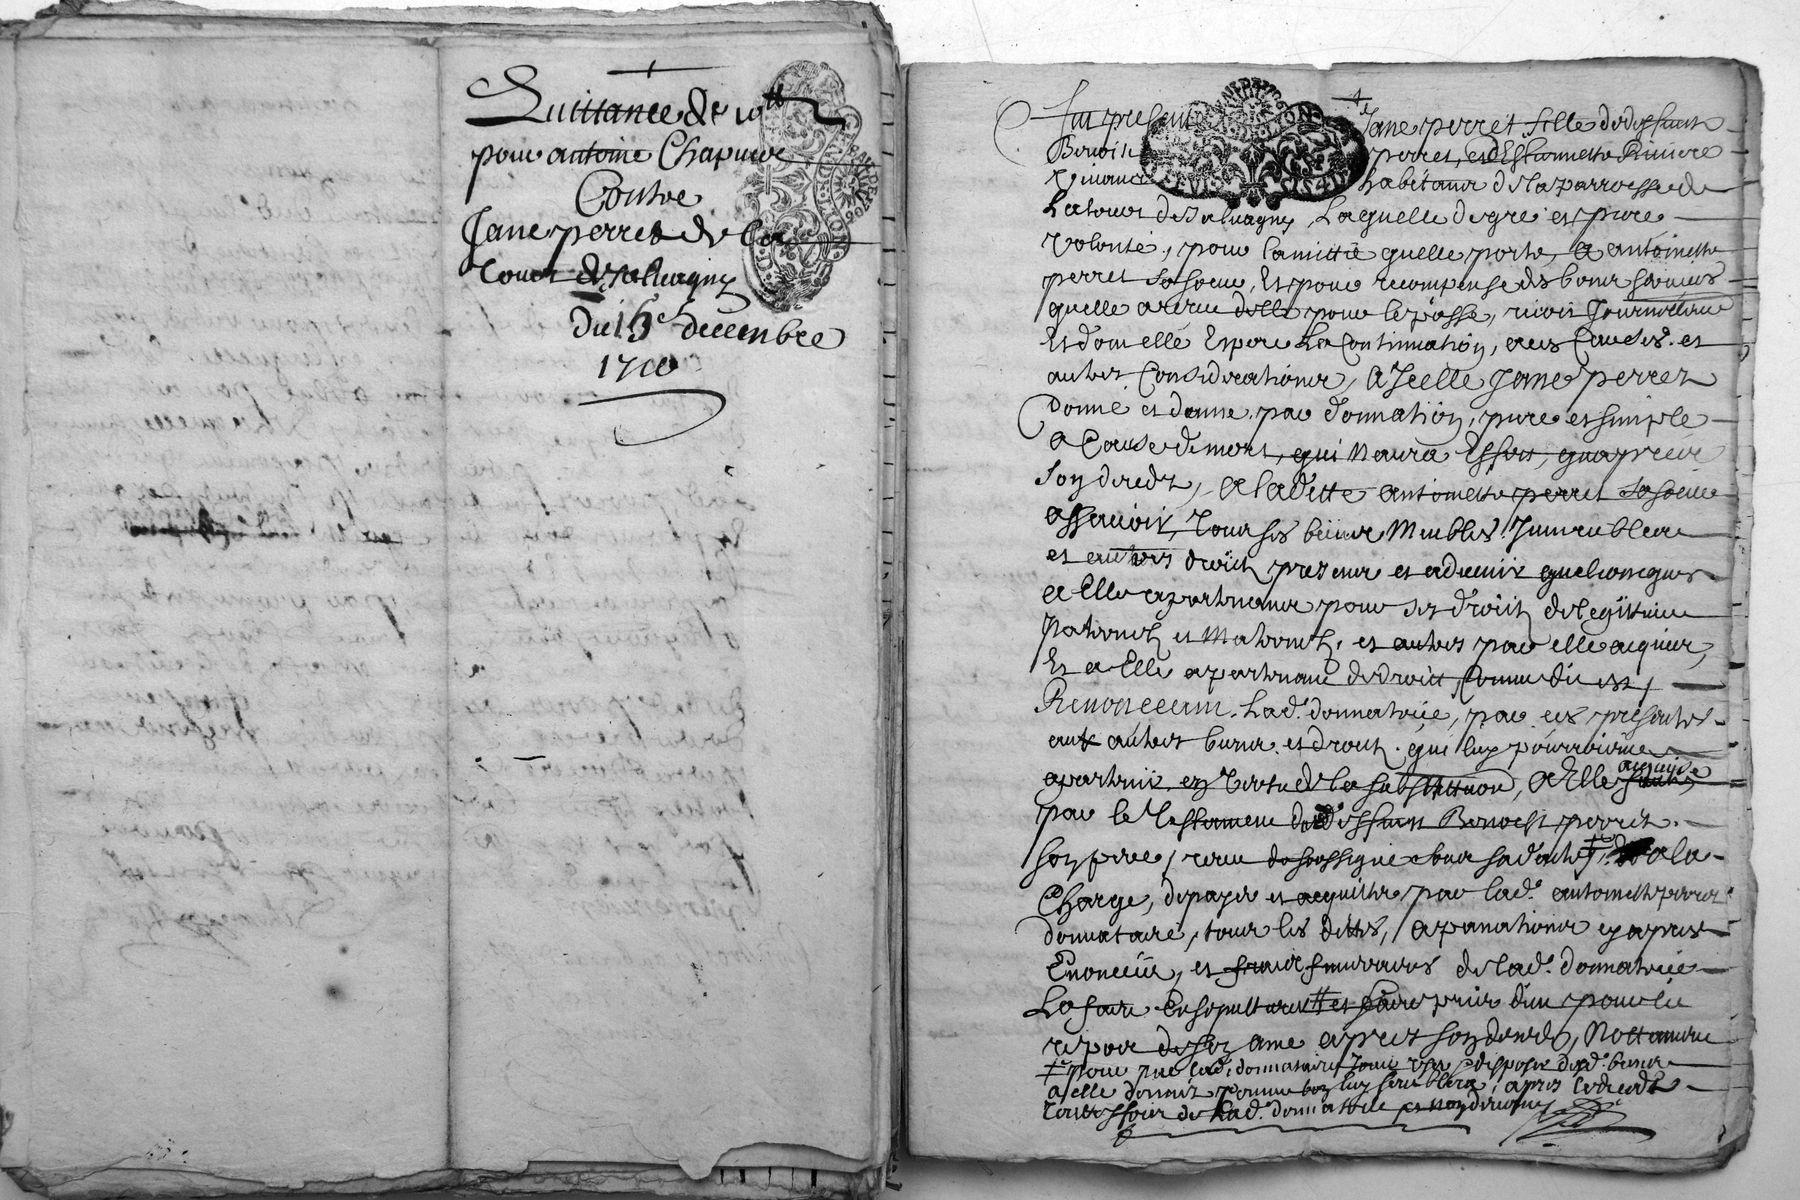 Quittance de 10tt
pour antoine Chapuis
Contre
Jane perret de la
Tour de Saluagny
Du 15e decembre
1710
Fut presente Jane perret fille de deffunt
Benoist perret, et d'Estiennette Riviere
viuant habitans de la parroesse de
La tour de Saluagny, Laquelle de gre et pure
volonté, pour lamittié quelle porte, a antoinette
perret sa soeur, Et pour recompense des bons seruices
quelle a receu delle pour le passé, recoit Journellemt
Et dont elle Espere La Continuation, a ces Causes et
autres Considerations, a Jcelle Jane perret
donné et donne par donnation, pure et simple
a Cause de mort, qui Naura Effect, quapres
son deceds, a ladette antoinette perret sa soeur
assauoir, Tous ses biens Meubles Immeubles
et autres droits presens et aduenir quelconques
a Elle apartenans pour ses droits de legitime
paternelz et Maternelz, et autres par elle acquis,
Et a Elle apartenans de droict, Comme dit est,
Renonceant Lad.e donnatrice, par ces presentes
aux autres biens et droits qui luy pourroient
apartenir en Vertu de la substitution, a Elle acquise
par le Testament dudt deffunt Benoist perret
son pere, receu du soussigné a la
Charge, de payer et acquitter par lad.e antoinette perret
donnataire, tous les dettes, apanations cy apres
Enoncées, et fraix funeraires de lad.e donnatrice
La faire Ensepulturer et faire prier dieu pour le
repos de son ame apres son deceds, Nottamme
pour par lad.e donnataire Jouir user disposer desd. biens
a elle donnez Comme bon luy semblera, apres le deceds
de lad.e donnatrice et non deuant